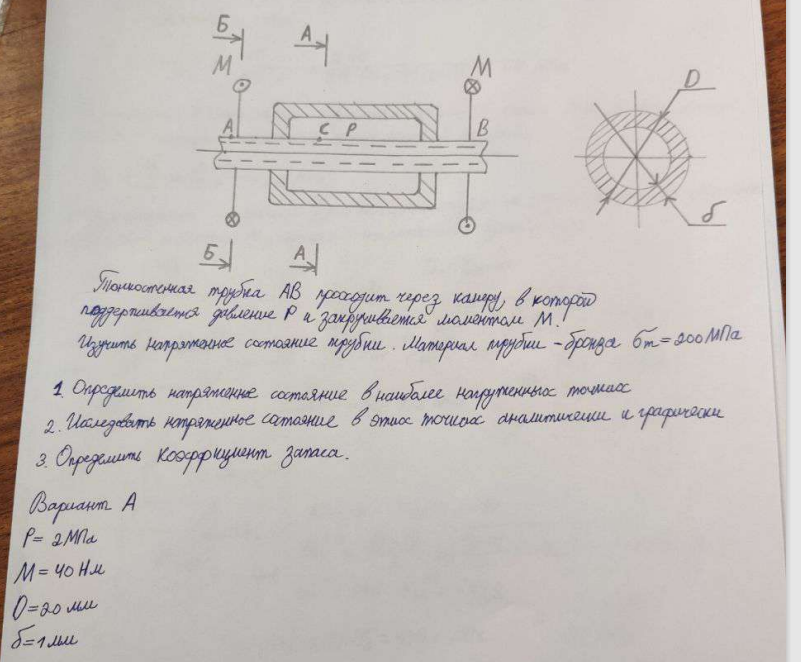 Б
А
М
М
А
С Р
В
D
δ
Б
А
Тонкостенная трубка АВ проходит через камеру, в которой
поддерживается давление Р и закручивается моментом М.
Изучить напряженное состояние трубки. Материал трубки - бронза бт = 200 МПа
1. Определить напряженное состояние в наиболее нагруженных точках
2. Исследовать напряженное состояние в этих точках аналитически и графически
3. Определить коэффициент запаса.
Вариант А
Р = 2 МПа
М = 40 Нм
D = 20 мм
δ = 1 мм